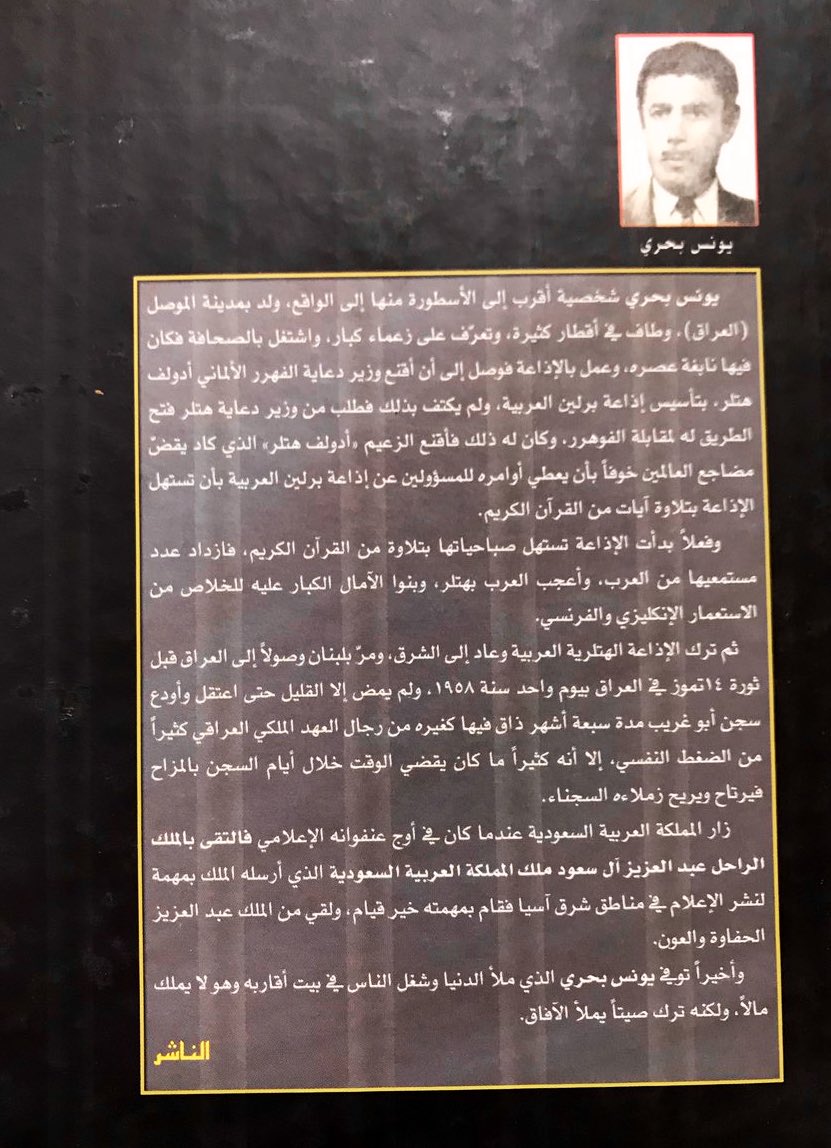 يونس بحري
يونس بحري شخصية أقرب إلى الأسطورة منها إلى الواقع، ولد بمدينة الموصل
(العراق)، وطاف في أقطار كثيرة، وتعرّف على زعماء كبار، واشتغل بالصحافة فكان
فيها نابغة عصره، وعمل بالإذاعة فوصل إلى أن أقنع وزير دعاية الفهرر الألماني أدولف
هتلر، بتأسيس إذاعة برلين العربية، ولم يكتف بذلك فطلب من وزير دعاية هتلر فتح
الطريق له لمقابلة الفوهرر، وكان له ذلك فأقنع الزعيم «أدولف هتلر» الذي كاد يقضّ
مضاجع العالمين خوفاً بأن يعطي أوامره للمسؤولين عن إذاعة برلين العربية بأن تستهل
الإذاعة بتلاوة آيات من القرآن الكريم.
وفعلاً بدأت الإذاعة تستهل صباحياتها بتلاوة من القرآن الكريم، فازداد عدد
مستمعيها من العرب، وأعجب العرب بهتلر، وبنوا الآمال الكبار عليه للخلاص من
الاستعمار الإنكليزي والفرنسي.
ثم ترك الإذاعة الهتلرية العربية وعاد إلى الشرق، ومرّ بلبنان وصولاً إلى العراق قبل
ثورة ١٤تموز في العراق بيوم واحد سنة ١٩٥٨، ولم يمض إلا القليل حتى اعتقل وأودع
سجن أبو غريب مدة سبعة أشهر ذاق فيها كغيره من رجال العهد الملكي العراقي كثيراً
من الضغط النفسي، إلا أنه كثيراً ما كان يقضي الوقت خلال أيام السجن بالمزاح
فيرتاح ويريح زملاءه السجناء.
زار المملكة العربية السعودية عندما كان في أوج عنفوانه الإعلامي فالتقى بالملك
الراحل عبد العزيز آل سعود ملك المملكة العربية السعودية الذي أرسله الملك بمهمة
لنشر الإعلام في مناطق شرق آسيا فقام بمهمته خير قيام، ولقي من الملك عبد العزيز
الحفاوة والعون.
وأخيراً توفي يونس بحري الذي ملأ الدنيا وشغل الناس في بيت أقاربه وهو لا يملك
مالاً، ولكنه ترك صيتاً يملأ الآفاق.
الناشر